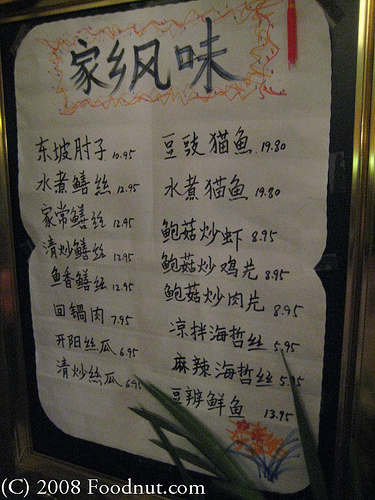 家乡风味
东坡肘子 10.95
水煮鳝丝 12.95
家常鳝丝 12.95
清炒鳝丝 12.95
鱼香鳝丝 12.95
回锅肉 7.95
开阳丝瓜 6.95
清炒丝瓜 6.95
豆豉猫鱼 19.80
水煮猫鱼 19.80
鲍菇炒虾 8.95
鲍菇炒鸡片 8.95
鲍菇炒肉片 8.95
凉拌海哲丝 5.95
麻辣海哲丝 5.95
豆瓣鲜鱼 13.95
(C) 2008 Foodnut.com